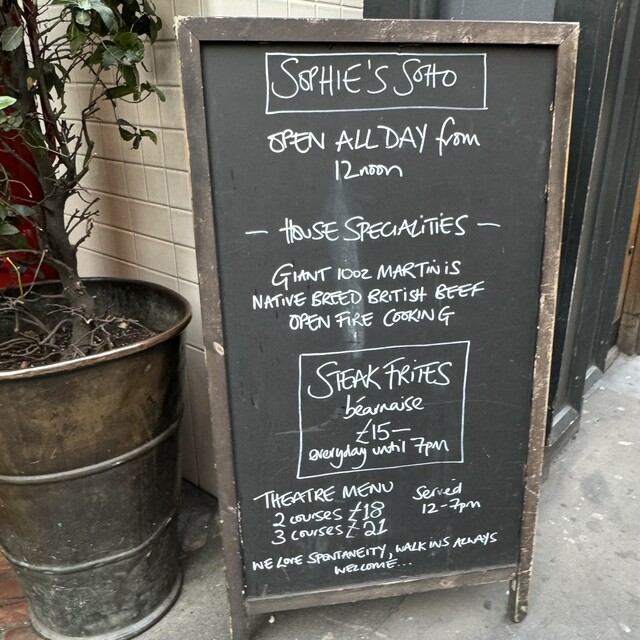 SOPHIE'S SOHO
OPEN ALL DAY from
12noon
— HOUSE SPECIALITIES —
GIANT 10oz MARTINIS
NATIVE BREED BRITISH BEEF
OPEN FIRE COOKING
STEAK FRITES
béarnaise
£15—
everyday until 7pm
THEATRE MENU
2 courses £18
3 courses £21
Served
12-7pm
WE LOVE SPONTANEITY, WALK INS ALWAYS
WELCOME...